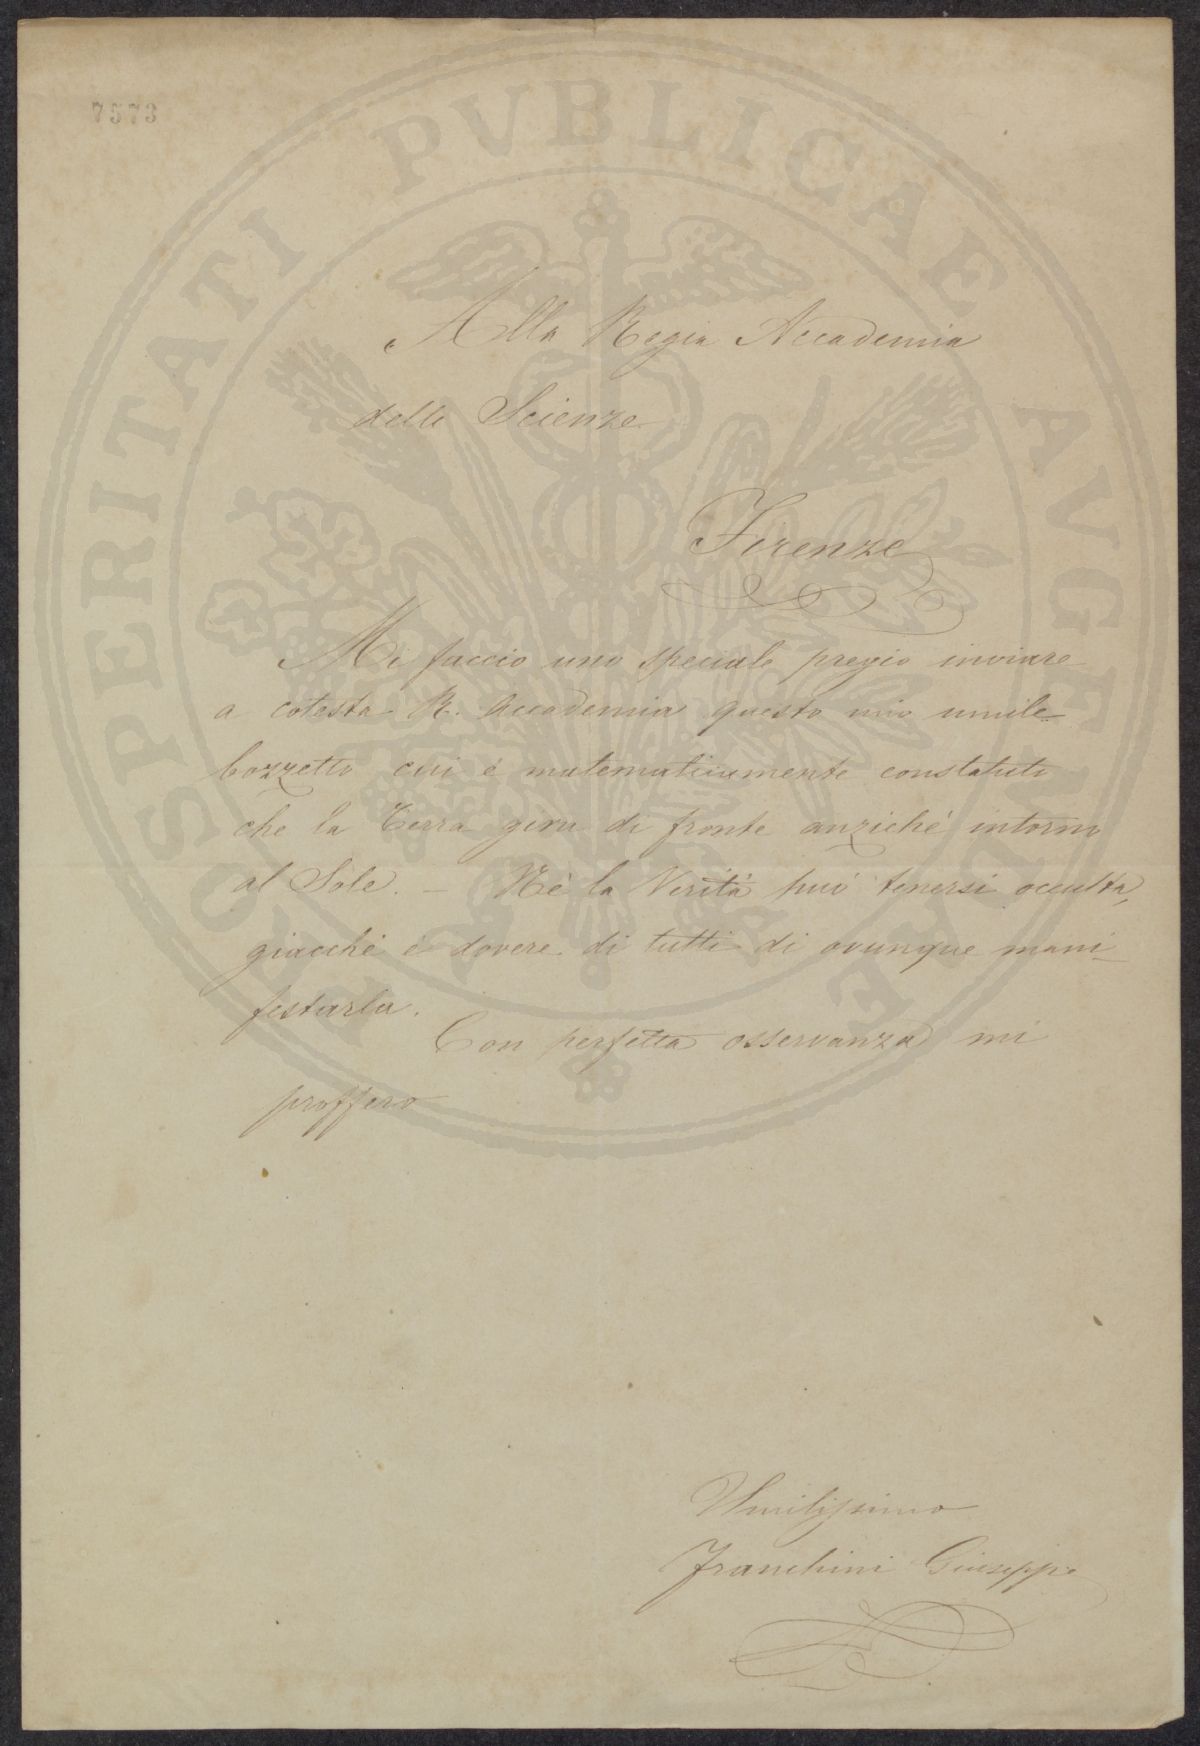 7573
PROSPERITATI PVBLICAE AVGENDAE
Alla Regia Accademia
delle Scienze
Firenze
Mi faccio uno speciale pregio inviare
a cotesta R. Accademia questo mio umile
bozzetto cui è matematicamente constatato
che la Terra gira di fronte anziché intorno
al Sole. — Nè la Verità può tenersi occulta,
giacchè è dovere di tutti di ovunque mani-
festarla.
Con perfetta osservanza mi
proffero
Umilissimo
Franchini Giuseppe